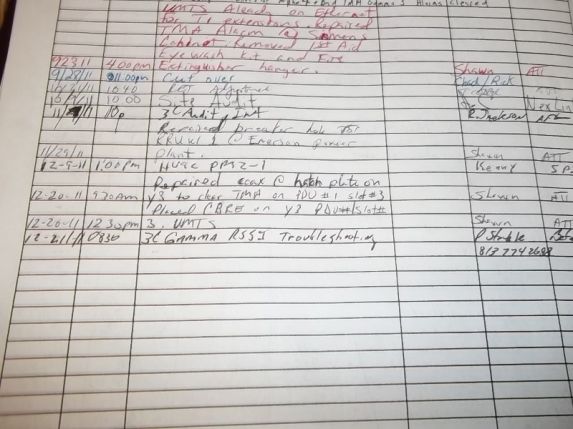 UMTS Alarm on Ethernet
for T1 extensions. Repaired
TMA Alarm @ Siemens
Cabinet. Removed 1st Aid
Eyewash kit and Fire
9/23/11 4:00pm Extinguisher hanger. Shawn ATT
9/28/11 11:00pm Cut over Chad/Rick
10:40 RET Adjustment
10:00 Site Audit NexLin
11/ /11 10p 3C Audit, Int R. Jackson ATT
Repaired breaker hole for
RRUW 1 @ Emerson power
11/29/11 Plant. Shawn ATT
12-9-11 1:00pm HVAC PPS2-1 Kenny SP
Repaired coax @ hatch plate on
12-20-11 9:30Am y3 to clear TMA on PDU #1 slot #3 Shawn ATT
Placed CARE on y3 PDU# slot#
12-20-11 12:30pm 3. UMTS Shawn ATT
12-21-11 0830 3C GAMMA RSSI Troubleshooting
813 774 2688